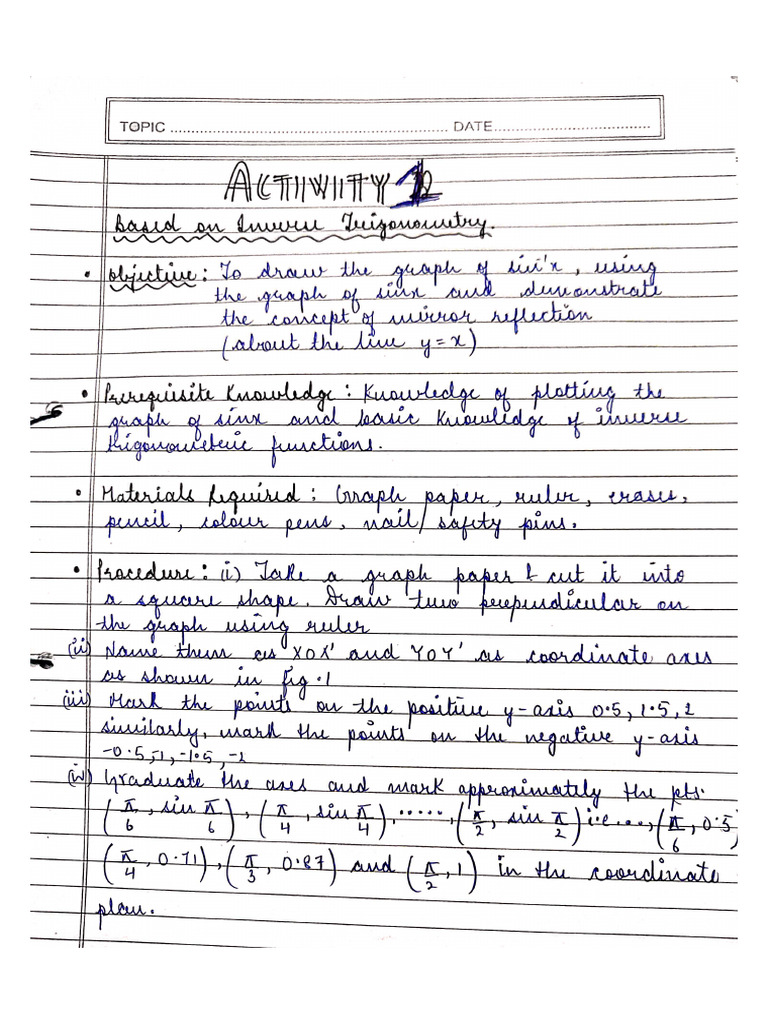 TOPIC ........................ DATE........................
ACTIVITY 12
Based on Inverse Trigonometry.
• Objective : To draw the graph of sin⁻¹x, using
the graph of sinx and demonstrate
the concept of mirror reflection
(about the line y=x)
• Prerequisite Knowledge : Knowledge of plotting the
graph of sinx and basic knowledge of inverse
trigonometric functions.
• Materials Required : Graph paper, ruler, eraser,
pencil, colour pens, nail/safety pins.
• Procedure : (i) Take a graph paper & cut it into
a square shape. Draw two perpendicular on
the graph using ruler
(ii) Name them as XOX' and YOY' as coordinate axes
as shown in fig.1
(iii) Mark the points on the positive y-axis 0.5, 1.5, 2
similarly, mark the points on the negative y-axis
-0.5, -1, -1.5, -2
(iv) Graduate the axes and mark approximately the pts.
(π/6, sin π/6), (π/4, sin π/4), ....., (π/2, sin π/2) i.e...., (π/6, 0.5)
(π/4, 0.71), (π/3, 0.87) and (π/2, 1) in the coordinate
plan.